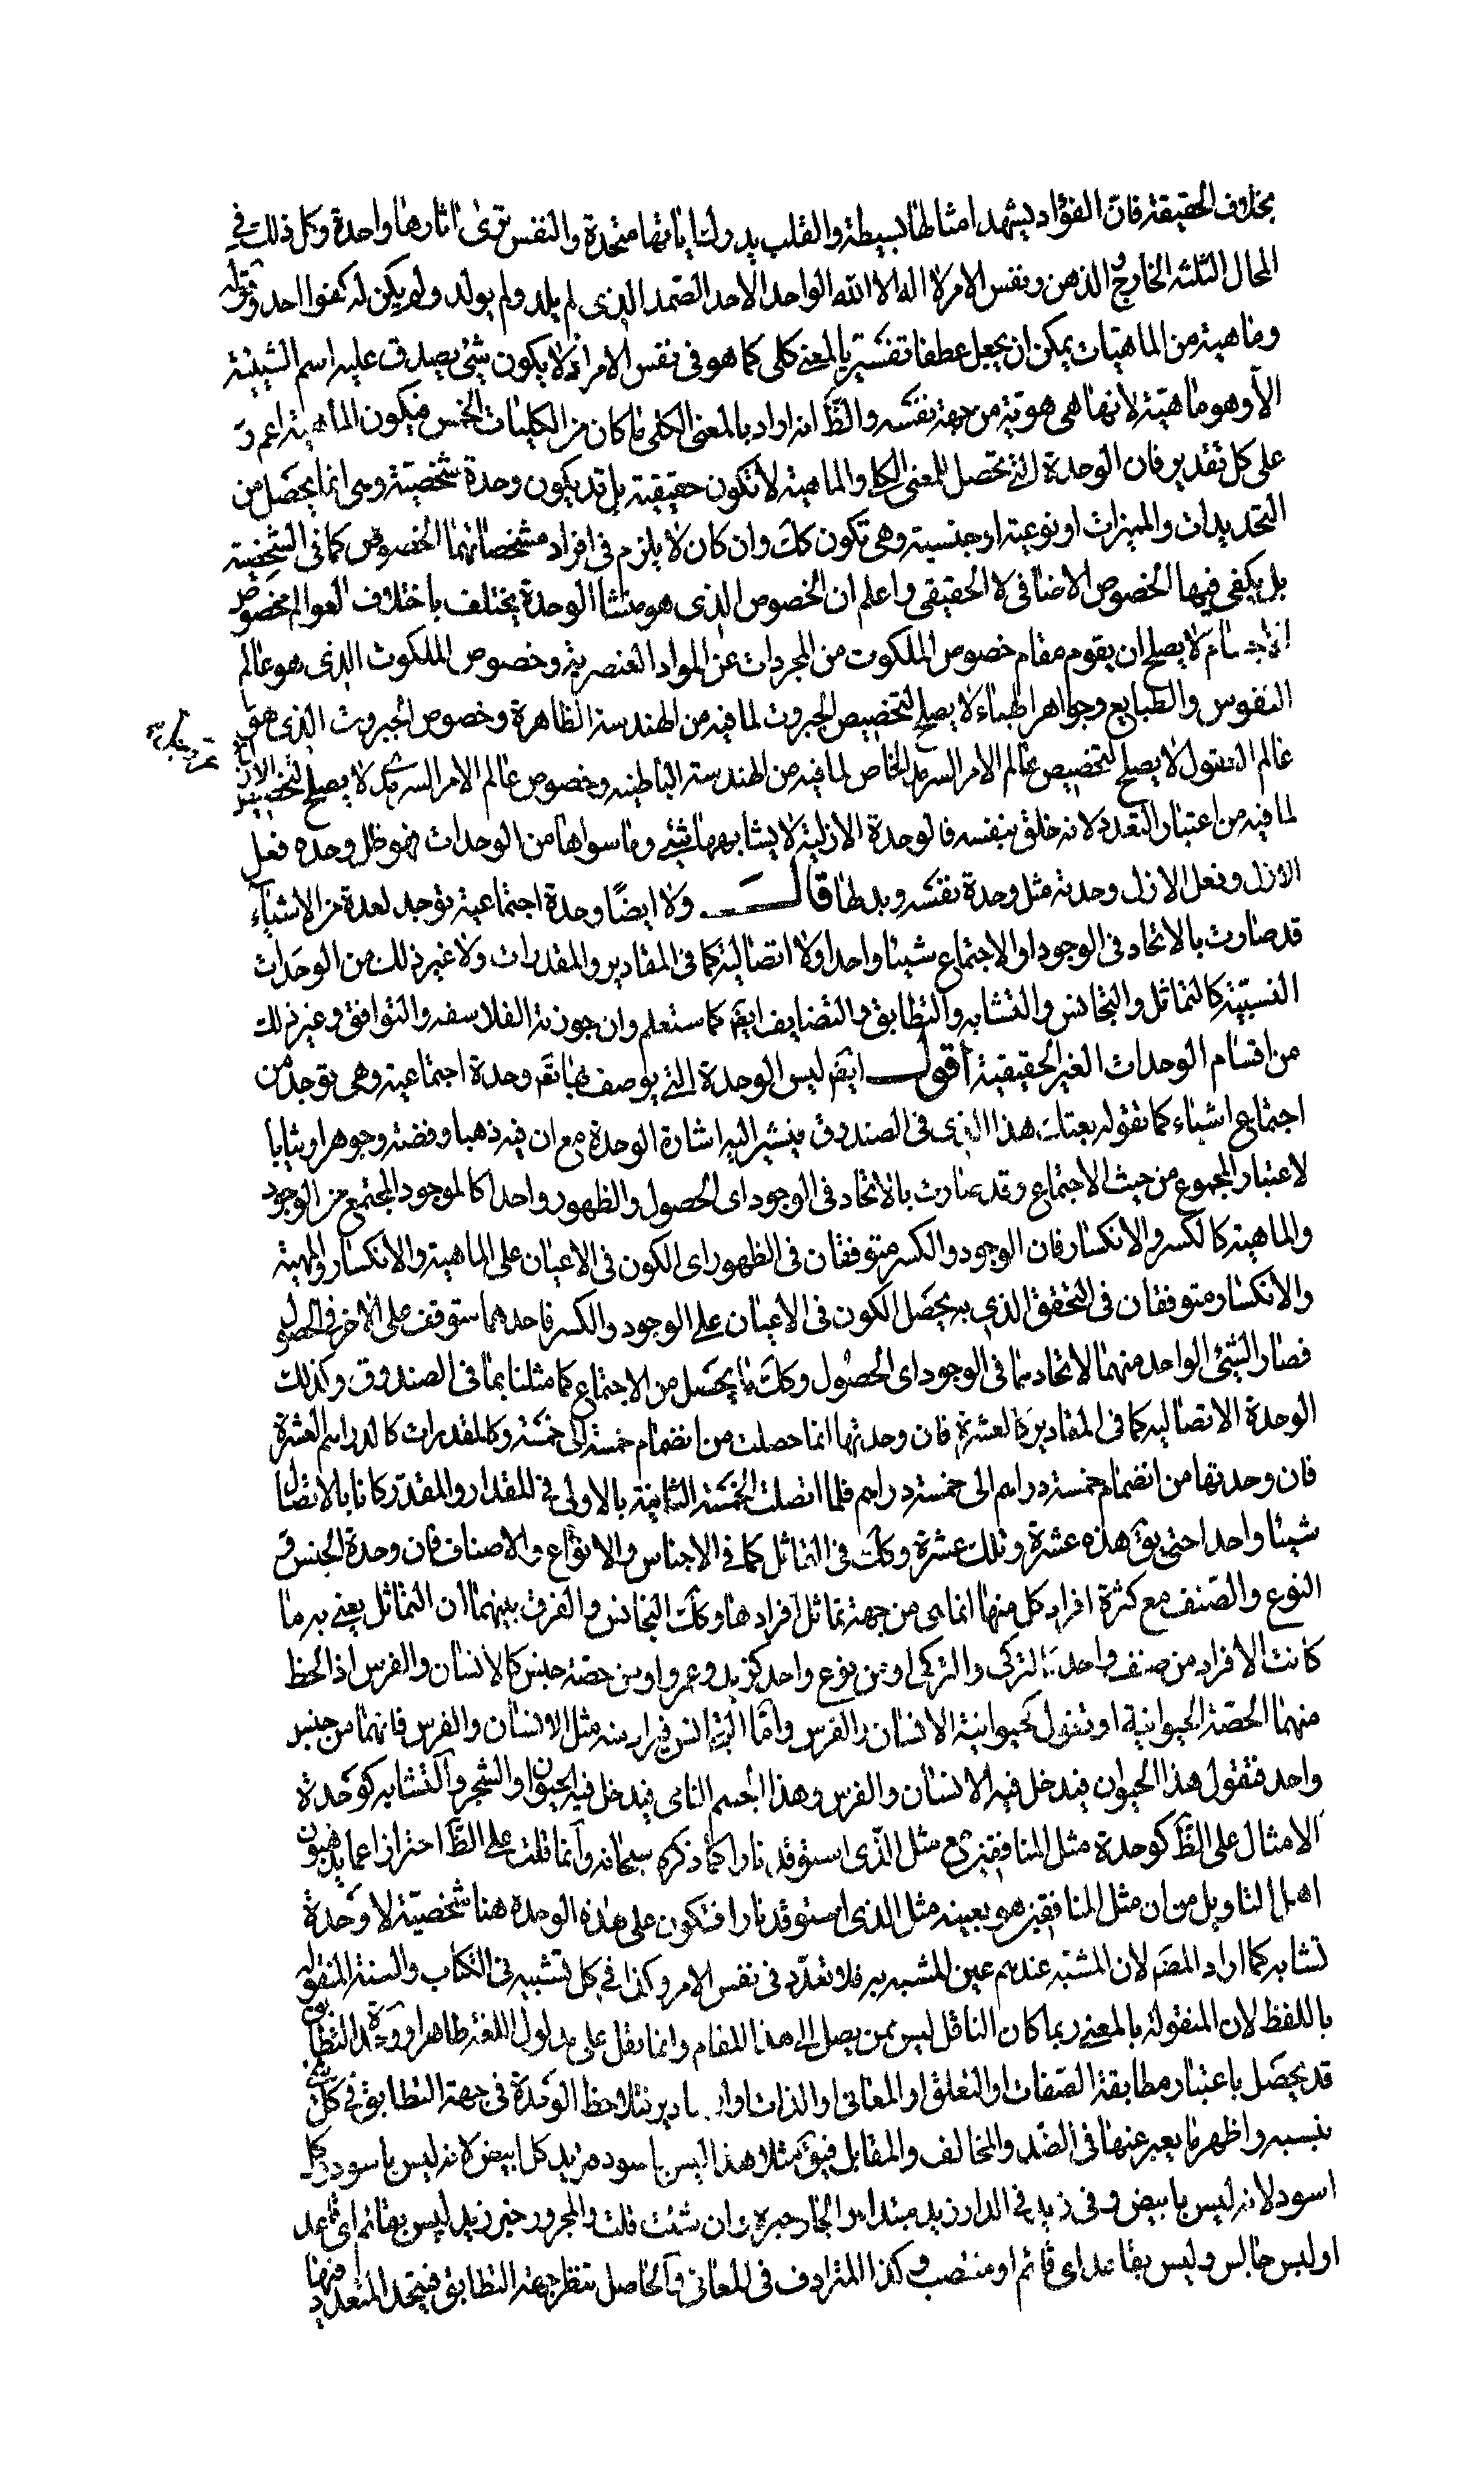 بخلاف الحقيقة فان الفؤاد يشهد امثالها بسيطة والقلب يدرك اياتها متحدة والنفس ترى اثارها واحدة وكل ذلك في
المحال الثلثة الخارج و الذهن ونفس الامر لا اله الا الله الواحد الاحد الصمد الذى لم يلد ولم يولد ولم يكن له كفوا احد وقوله
وماهية من الماهيات يمكن ان يجعل عطفا تفسيريا لمعنى كلى كما هو فى نفس الامر اذ لا يكون شئ يصدق عليه اسم الشيئية
الا وهو ماهية لانها هى هوية من جهة نفسه والظ انه اراد بالمعنى الكلى ما كان من الكليات الخمس فيكون الماهية اعم و
على كل تقدير فان الوحدة التى تحصل للمعنى الكلى والماهية لا تكون حقيقية بل قد يكون وحدة شخصية وهى انما يحصل من
التحديدات والمميزات او نوعية او جنسية وهى تكون كك وان كان لا يلزم فى افراد مشخصاتهما الخصوص كما فى الشخصية
بل يكفى فيها الخصوص الاضافى لا الحقيقى واعلم ان الخصوص الذى هو منشا الوحدة يختلف باختلاف العوالم فخصوص
الاجسام لا يصلح ان يقوم مقام خصوص الملكوت من المجردات عن المواد العنصرية وخصوص الملكوت الذى هو عالم
النفوس والطبايع وجواهر الهباء لا يصلح لتخصيص الجبروت لما فيه من الهندسة الظاهرة وخصوص الجبروت الذى هو
عالم العقول لا يصلح لتخصيص عالم الامر السرمد الخاص لما فيه من الهندسة الباطنة وخصوص عالم الامر السرمدى لا يصلح لتخصيص الازل
لما فيه من اعتبار التعدد لانه خلق بنفسه فالوحدة الازلية لا يشابهها شئ وما سواها من الوحدات فهو ظل وحدة فعل
الازل وفعل الازل وحدته مثل وحدة نفسه وبدلها قال ولا ايضًا وحدة اجتماعية توجد لعدة من الاشياء
قد صارت بالاتحاد فى الوجود او الاجتماع شيئا واحدا ولا اتصالية كما فى المقادير والمقدرات ولا غير ذلك من الوحدات
النسبية كالتماثل والتجانس والتشابه والتطابق والتضايف ايضَ كما ستعلم وان جوزته الفلاسفه والتوافق وغير ذلك
من اقسام الوحدات الغير الحقيقية اقول ايضَ ليس الوحدة التى يوصف بها تعَ وحدة اجتماعية وهى توجد من
اجتماع اشياء كما تقول بعتك هذا الذى فى الصندوق فيشير اليه اشارة الوحدة مع ان فيه ذهبا وفضة وجوهرا وثيابا
لاعتبار المجموع من حيث الاجتماع وقد صارت بالاتحاد فى الوجود اى الحصول والظهور واحدا كالموجود المجتمع من الوجود
والماهية كالكسر والانكسار فان الوجود والكسر متوقفان فى الظهور اى الكون فى الاعيان على الماهية والانكسار والمهية
والانكسار متوقفان فى التحقق الذى به يحصل الكون فى الاعيان على الوجود والكسر فاحدهما ستوقف على الاخر فى الحصول
فصار الشئ الواحد منهما لاتحادهما فى الوجود اى الحصول وكك ما يحصل من الاجتماع كما مثلنا بما فى الصندوق وكذلك
الوحدة الاتصاليه كما فى المقادير كالعشرة فان وحدتها انما حصلت من انضمام خمسة الى خمسة وكالمقدرات كالدراهم العشرة
فان وحدتها من انضمام خمسة دراهم الى خمسة دراهم فلما اتصلت الخمسة الثانية بالاولى فى المقدار والمقدر كانا بالاتصال
شيئا واحدا حتى يقَ هذه عشرة وتلك عشرة وكك فى التماثل كما فى الاجناس والانواع والاصناف فان وحدة الجنس و
النوع والصنف مع كثرة افراد كل منها انما هى من جهة تماثل افرادها وكك التجانس والفرق بينهما ان التماثل يعنى به ما
كانت الافراد من صنف واحد كالتركى والتركى او من نوع واحد كزيد وعمرو او من حصة جنس كالانسان والفرس اذ الحظ
منهما الحصة الحيوانية او تقول كحيوانية الانسان والفرس واما التجانس فيراد منه مثل الانسان والفرس فانهما من جنس
واحد فتقول هذا الحيوان فيدخل فيه الانسان والفرس وهذا الجسم النامى فيدخل فيه الحيوان والشجر والتشابه كوحدة
الامثال على الظَ كوحدة مثل المنافقين مع مثل الذى استوقد نارا كما ذكره سبحانه وانما قلت على الظَ احترازا عما يذهبون
اهل التاويل من ان مثل المنافقين هو بعينه مثل الذى استوقد نارا فتكون على هذه الوحدة هنا شخصية لا وحدة
تشابه كما اراد المصَ لان المشبه عندهم عين المشبه به فلا تعدد فى نفس الامر وكذا فى كل تشبيه فى الكتاب والسنة المنقولة
باللفظ لان المنقولة بالمعنى ربما كان الناقل ليس ممن يصل الى هذا المقام وانما نقل على مدلول اللغة ظاهرا ووحدة التطابق
قد يحصل باعتبار مطابقة الصفات او التعلق او المعانى او الذات او فتلاحظ الوحدة فى جهة التطابق فى كل شئ
بنسبه واظهر ما يعبر عنها فى الضد والمخالف والمقابل فيقَ مثلا هذا ليس باسود فتريد كل ابيض لانه ليس باسود وكل
اسود لانه ليس بابيض وفى زيد فى الدار زيد مبتداء والجار خبره وان شئت قلت والمجرور خبر زيد ليس بقائم اى قاعد
او ليس جالس وليس بقاعد اى قائم او منتصب وكذا المترادف فى المعانى والحاصل تنظر جهة التطابق فيتحد المتعدد فيها